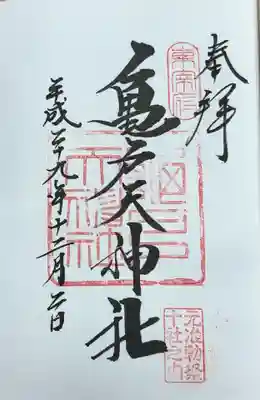 奉拝
東宰府
亀戸天神社
元准勅祭
十社之内
平成二十九年十二月二日